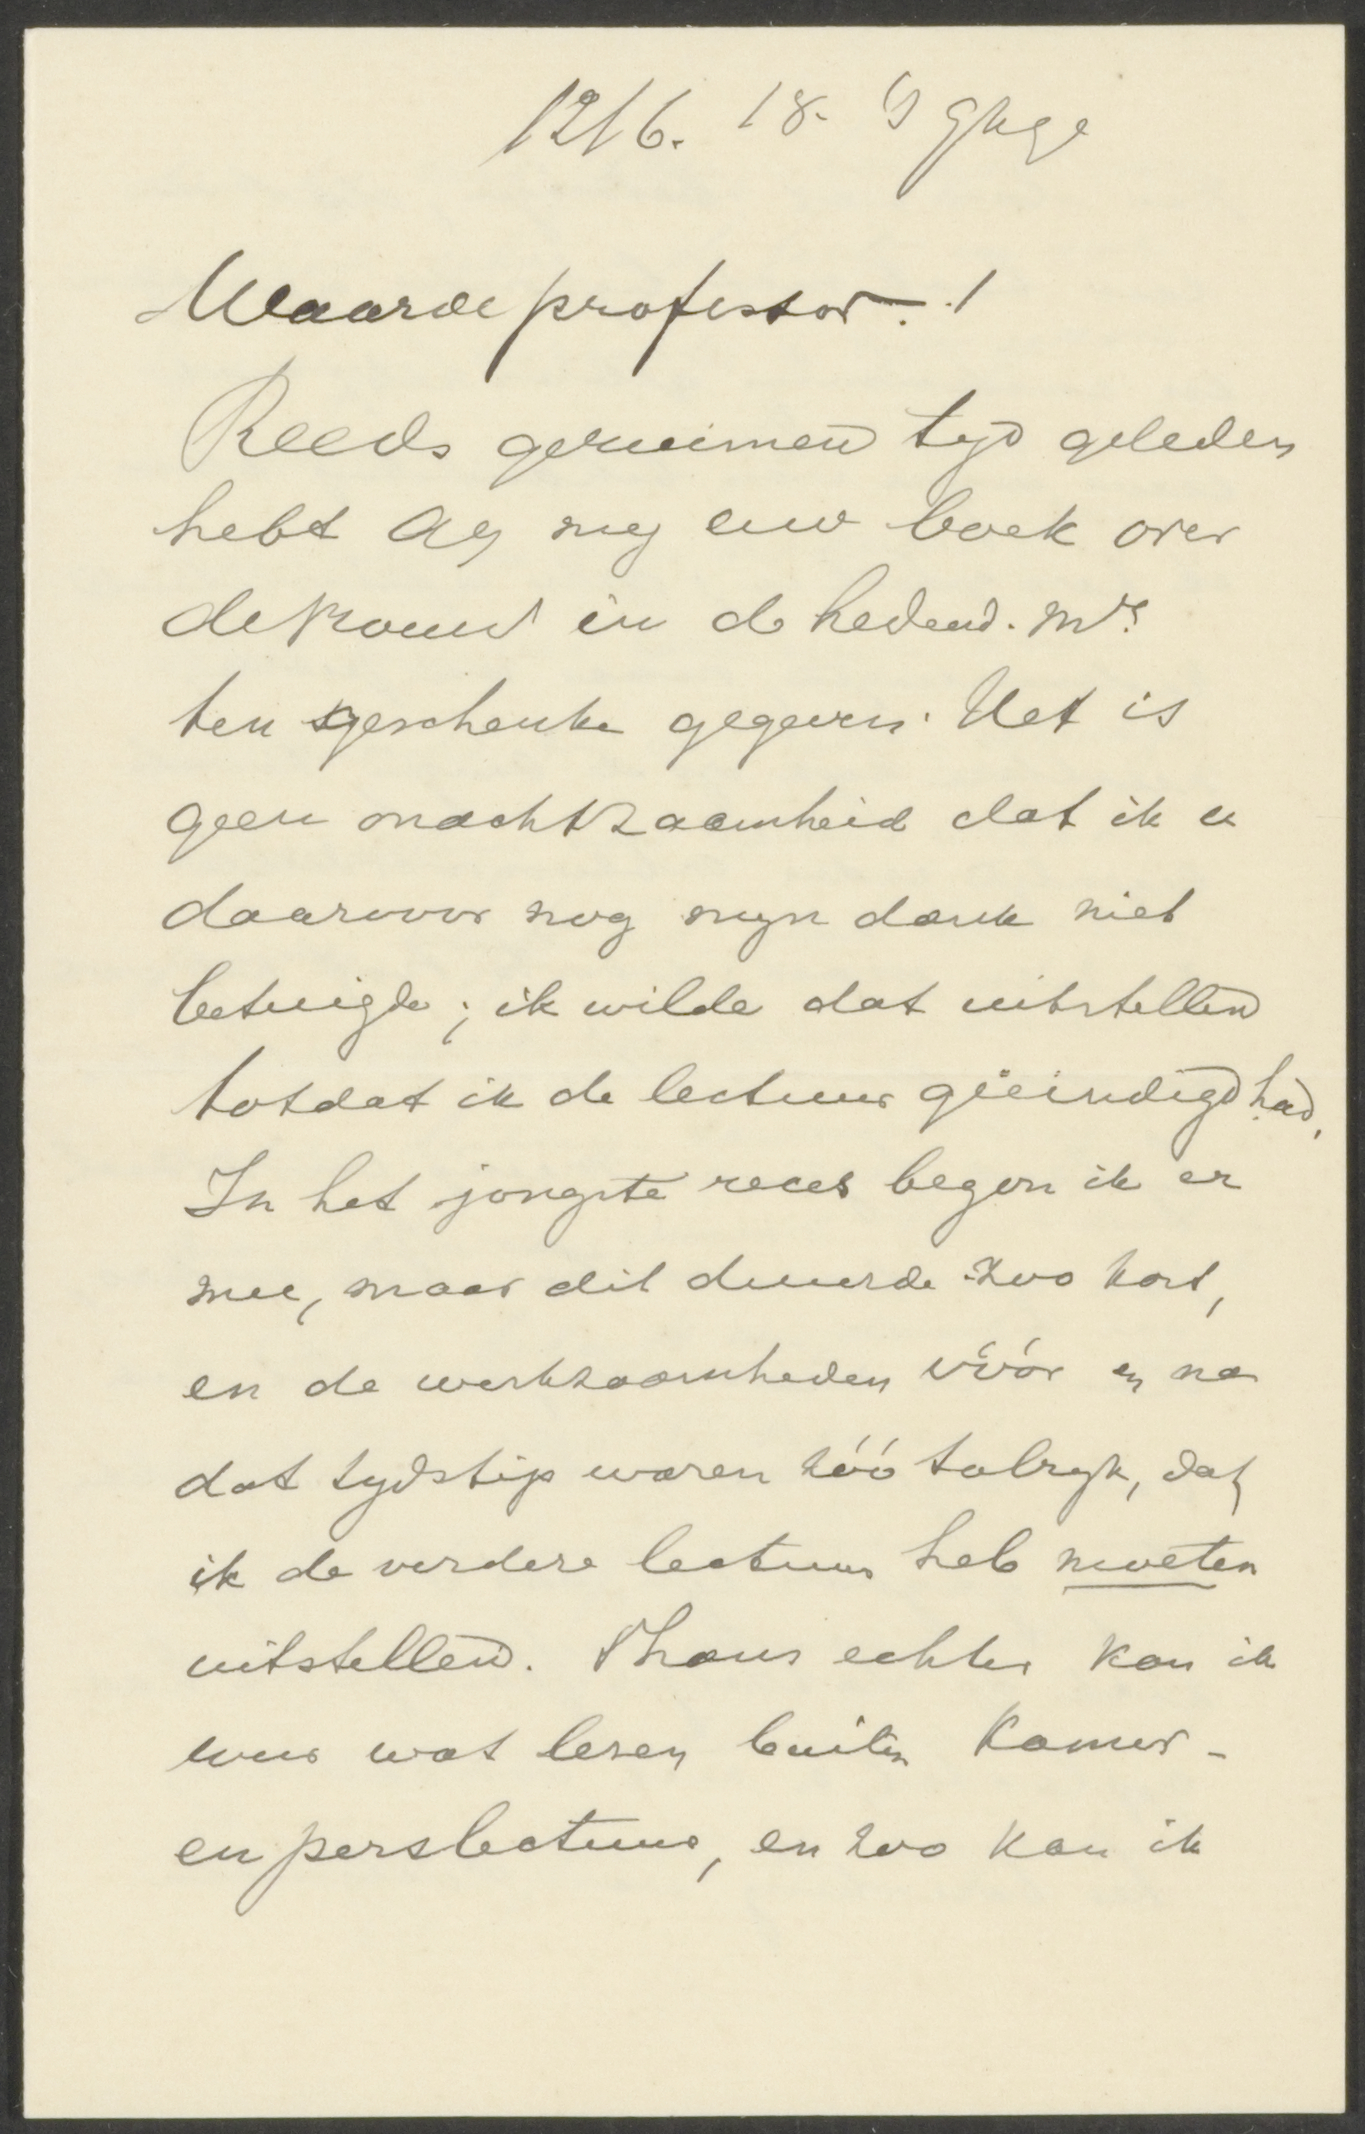 12/6. 18. 's Ghge
Waarde professor!
Reeds geruimen tyd geleden
hebt Gy my uw boek over
de vrouw in de hedend. Mij
ten geschenke gegeven. Het is
geen onachtzaamheid dat ik u
daarvoor nog myn dank niet
betuigde; ik wilde dat uitstellen
totdat ik de lectuur geëindigd had.
In het jongste reces begon ik er
mee, maar dit duurde zoo kort,
en de werkzaamheden vóór en na
dat tydstip waren zóó talryk, dat
ik de verdere lectuur heb moeten
uitstellen. Thans echter kan ik
weer wat lezen buiten Kamer-
en perslectuur, en zoo kan ik